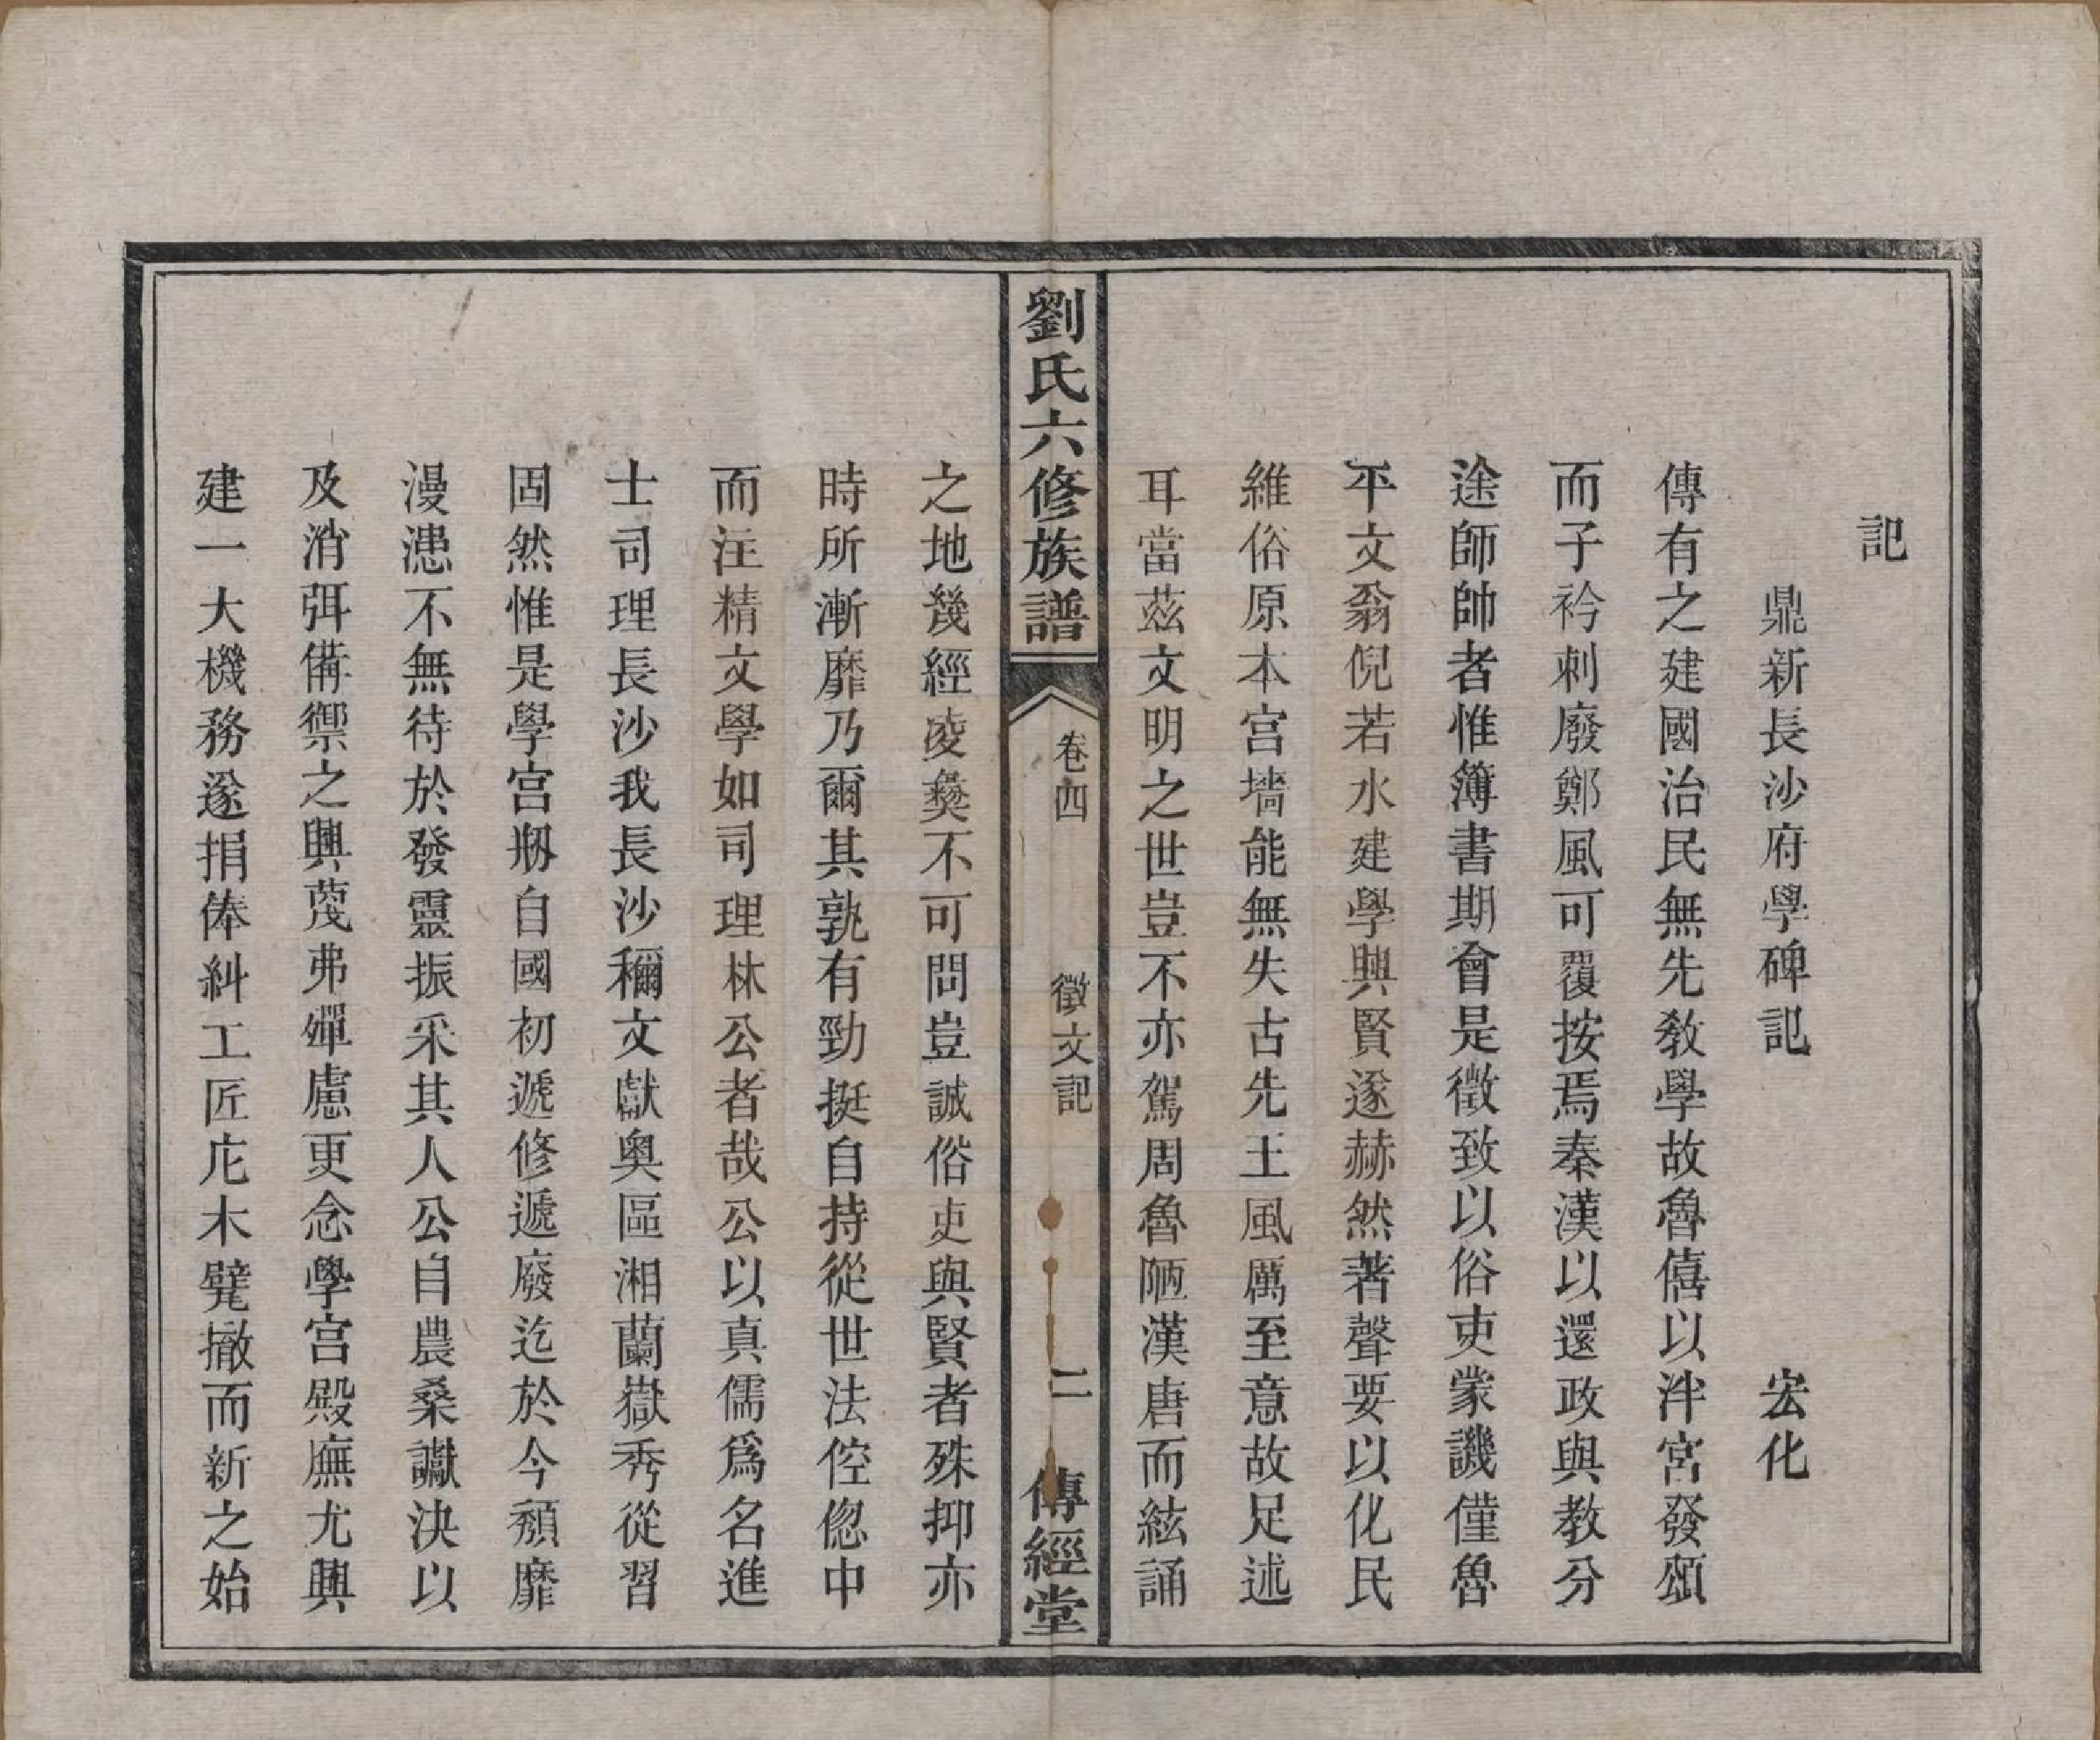 記
鼎新長沙府學碑記　宏化
傳有之建國治民無先教學故魯僖以泮宮發頌
而子衿刺廢鄭風可覆按焉秦漢以還政與教分
途師帥者惟簿書期會是徵致以俗吏蒙譏僅魯
平文翁倪若水建學興賢遂赫然著聲要以化民
維俗原本宮墻能無失古先王風厲至意故足述
耳當茲文明之世豈不亦駕周魯陋漢唐而絃誦
劉氏六修族譜　卷四　徵文記　二　傳經堂
之地幾經凌彝不可問豈誠俗吏與賢者殊抑亦
時所漸靡乃爾其孰有勁挺自持從世法倥偬中
而注精文學如司理林公者哉公以真儒爲名進
士司理長沙我長沙稱文獻奧區湘蘭嶽秀從習
固然惟是學宮剏自國初遞修遞廢迄於今頹靡
漫漶不無待於發靈振采其人公自農桑讞決以
及消弭備禦之興蔑弗殫慮更念學宮殿廡尤興
建一大機務遂捐俸糾工匠庀木甓撤而新之始